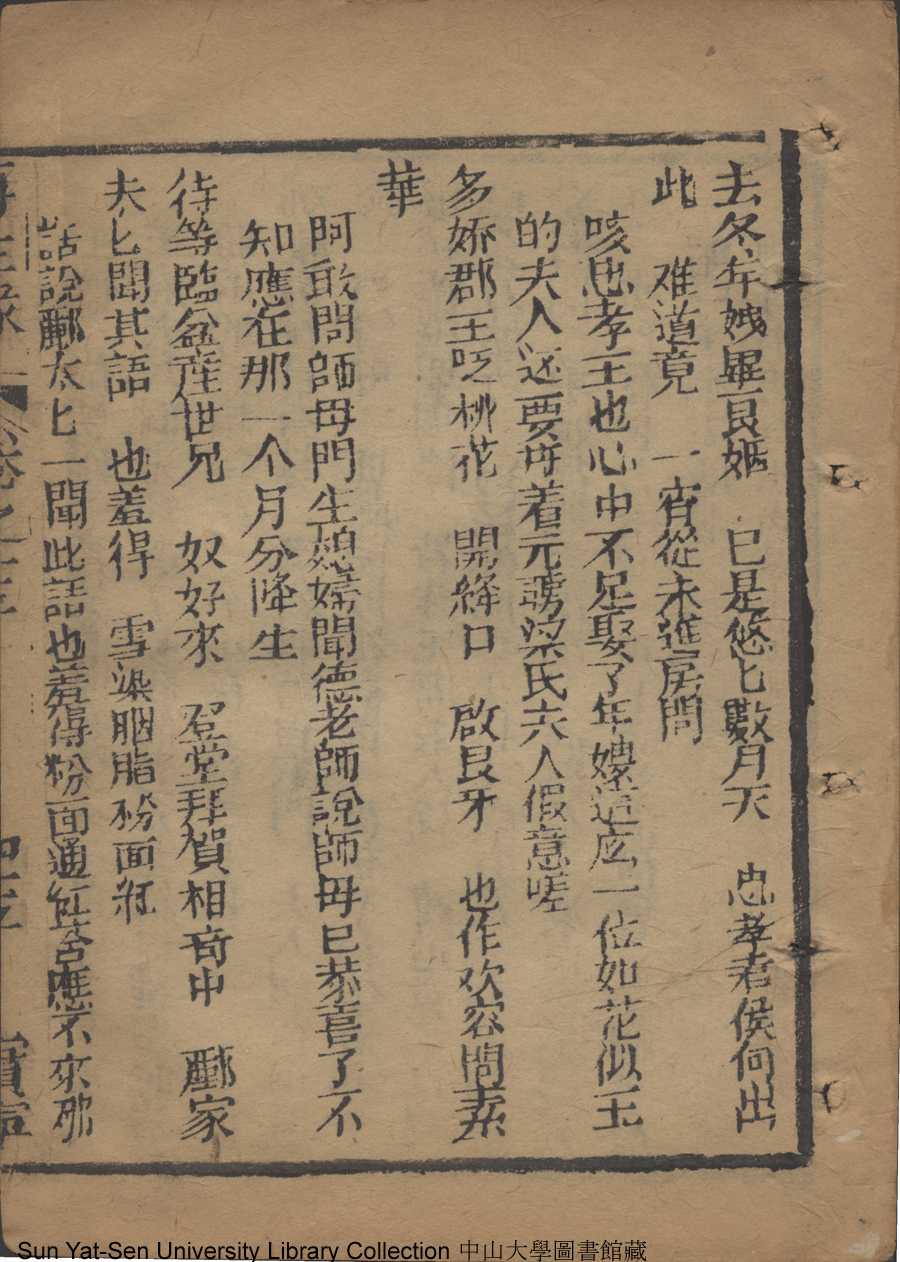 去冬年娘畢良姻　已是悠匕數月天　忠孝君侯何出
此　难道竟　一宵從未進房間
咳忠孝王也心中不足娶了年嫂這庅一位如花似玉
的夫人还要再着元謅梁氏夫人假意嗟
多娇郡王吃桃花　開絳口　啟艮牙　也作欢容問素
華
阿敢問師母門生媳婦聞德老師說師母已恭喜了不
知應在那一个月分降生
待等臨盆産世兄　奴好來　登堂拜賀相府中　酈家
夫匕聞其語　也羞得　雪染胭脂粉面紅
話說酈太匕一聞此話也羞得粉面通紅荅應不來那
再生緣　卷之三
Sun Yat-Sen University Library Collection 中山大學圖書館藏